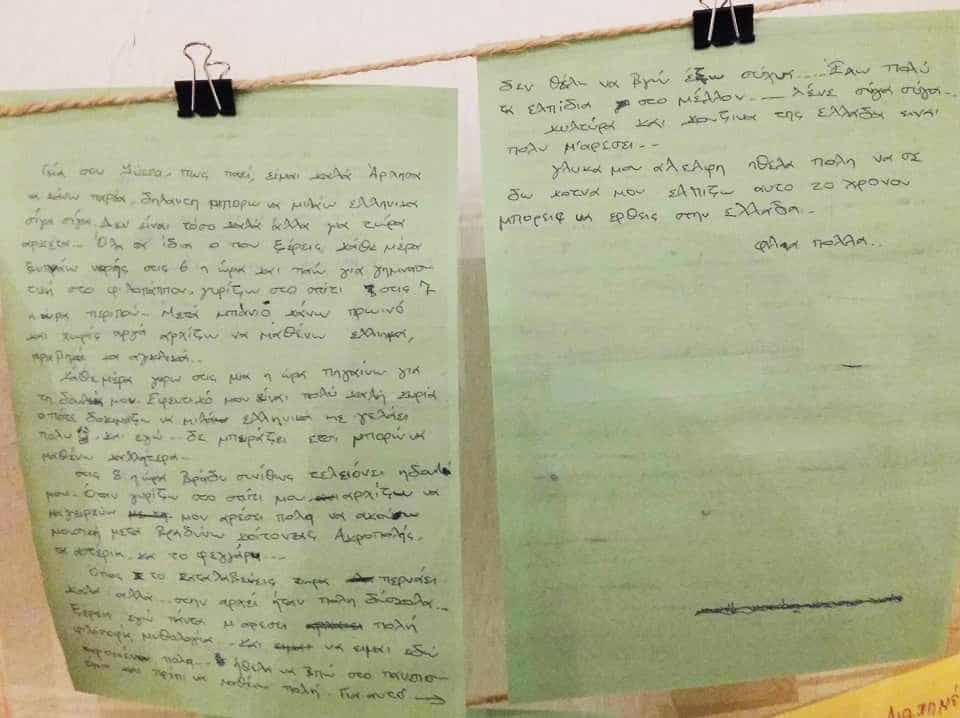 Γεία σου πως παεί, είμαι καλά Άρχησα
να κάνω παρέα, δηλαυτη μπορω να μιλάω ελληνικα
σίγα σίγα. Δεν είναι τόσο καλά άλλα για τώρα
αρκετα... Όλα τα ίδια ο που ξέρεις κάθε μέρα
ξυπνάω νορής στις 6 η ώρα και παώ για γημνασ-
τική στο φιλοπαππου. γυρίζω στο σπίτι στις 7
η ώρα περιπου. Μετά μπανιό κάνω πρωινό
και χωρίς αργά αρχίζω να μαθένω ελληνικα,
και αγγλικά..
Κάθε μέρα γυρω στις μια η ώρα πηγαίνω για
τη δουλειά μου. Εφεντικό μου είναι πολύ καλή κυρία
οπότε δοκιμάζω να μιλάω ελληνικά με γελάει
πολυ και εγώ... δε μπειράζει ετσι μπορώ να
μαθένω καλλητερα..
στις 8 η ώρα βράδυ συνίθως τελειόνει η δουλειά
μου. Όταν γυρίζω στο σπίτι μου, αρχίζω να
μαγειρεύω μου αρέσει πολη να ακούω
μουσική μετά βραδύνω κοίτοντας Ακροπολής,
τα αστέρια και το φεγγάρη....
Όπως το καταλαβένεις τωρα περνάει
καλά αλλά... στην αρχεί ήταν πολη δύσκολα...
ξερεις εγώ πάντα μ αρεσει πολή
μυθολογία.. Και να ειμαι εδώ
πολα... ήθελα να βπώ στο πανεπισ-
και πρέπι να μαθένω πολή. Για αυτό →
δεν θέλη να βγώ έξω συχνα.... Έχω πολύ
τα ελπίδια στο μέλλον... λένε σίγα σίγα...
κυλτύρα και κουζινα της Ελλαδα ειναι
πολυ μ'αρεσει..
γλυκα μου αδελφη ηθελα πολη να σε
δω κοτνα μου ελπιζω αυτο το χρονου
μπορεις να ερθεις στην Ελλαδα..
φιλια πολλα..